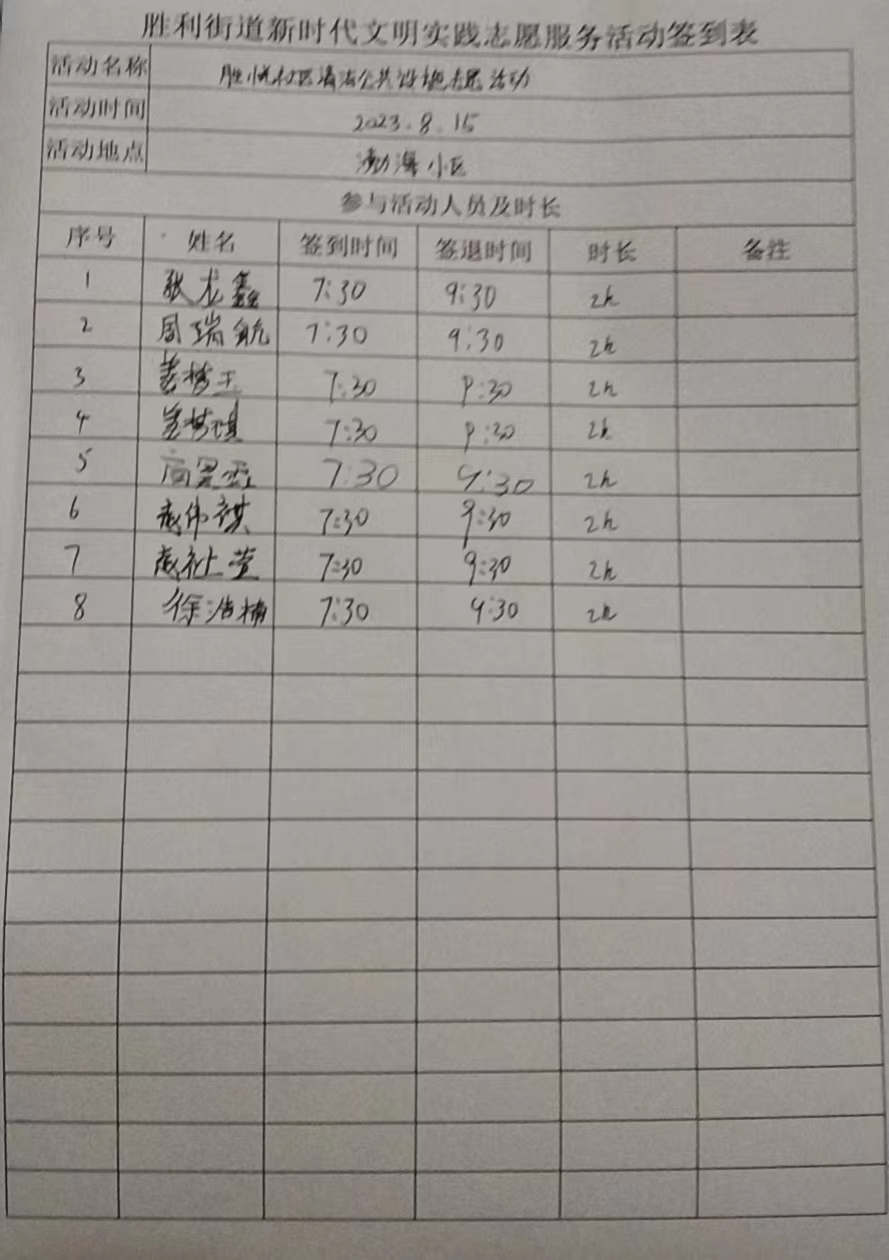 胜利街道新时代文明实践志愿服务活动签到表
活动名称 胜悦社区清洁公共设施志愿活动
活动时间 2023.8.15
活动地点 渤海小区
参与活动人员及时长
序号 姓名 签到时间 签退时间 时长 备注
1 张龙鑫 7:30 9:30 2h
2 周瑞航 7:30 9:30 2h
3 姜梦玉 7:30 9:30 2h
4 姜梦琪 7:30 9:30 2h
5 7:30 9:30 2h
6 7:30 9:30 2h
7 7:30 9:30 2h
8 徐浩楠 7:30 9:30 2h